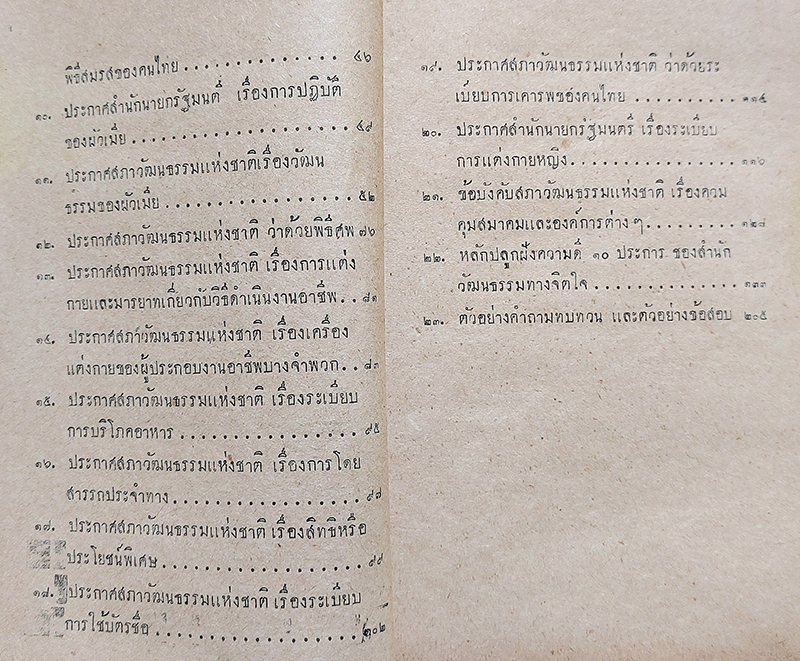 พิธีสมรสของคนไทย . . . . . . . . . . . . . . ๔๖
๑๐. ประกาศสำนักนายกรัฐมนตรี เรื่องการปฏิบัติ
ของผัวเมีย . . . . . . . . . . . . . . . . . . ๔๙
๑๑. ประกาศสภาวัฒนธรรมแห่งชาติเรื่องวัฒน
ธรรมของผัวเมีย . . . . . . . . . . . . . . . ๕๒
๑๒. ประกาศสภาวัฒนธรรมแห่งชาติ ว่าด้วยพิธีศพ ๗๖
๑๓. ประกาศสภาวัฒนธรรมแห่งชาติ เรื่องการแต่ง
กายและมารยาทเกี่ยวกับวิธีดำเนินงานอาชีพ . . ๘๑
๑๔. ประกาศสภาวัฒนธรรมแห่งชาติ เรื่องเครื่อง
แต่งกายของผู้ประกอบงานอาชีพบางจำพวก . . ๘๓
๑๕. ประกาศสภาวัฒนธรรมแห่งชาติ เรื่องระเบียบ
การบริโภคอาหาร . . . . . . . . . . . . . . ๙๕
๑๖. ประกาศสภาวัฒนธรรมแห่งชาติ เรื่องการโดย
สารรถประจำทาง . . . . . . . . . . . . . . ๙๗
๑๗. ประกาศสภาวัฒนธรรมแห่งชาติ เรื่องสิทธิหรือ
ประโยชน์พิเศษ . . . . . . . . . . . . . . . ๙๙
๑๘. ประกาศสภาวัฒนธรรมแห่งชาติ เรื่องระเบียบ
การใช้บัตรชื่อ . . . . . . . . . . . . . . . ๑๐๒
๑๙. ประกาศสภาวัฒนธรรมแห่งชาติ ว่าด้วยระ
เบียบการเคารพของคนไทย . . . . . . . . . ๑๑๔
๒๐. ประกาศสำนักนายกรัฐมนตรี เรื่องระเบียบ
การแต่งกายหญิง . . . . . . . . . . . . . . ๑๑๖
๒๑. ข้อบังคับสภาวัฒนธรรมแห่งชาติ เรื่องควบ
คุมสมาคมและองค์การต่าง ๆ . . . . . . . . ๑๒๘
๒๒. หลักปลูกฝังความดี ๑๐ ประการ ของสำนัก
วัฒนธรรมทางจิตใจ . . . . . . . . . . . . ๑๓๓
๒๓. ตัวอย่างคำถามทบทวน และตัวอย่างข้อสอบ ๒๐๕